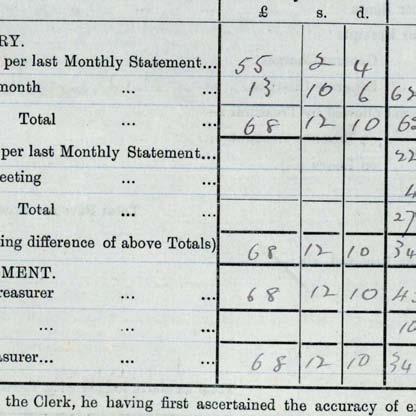 £ s. d.
RY.
per last Monthly Statement... 55 2 4
month ... ... 13 10 6 68
Total ... ... 68 12 10 68
per last Monthly Statement... 22
eeting ... ... 4
Total ... ... 27
ing difference of above Totals) 68 12 10 34
MENT.
reasurer ... ... 68 12 10
... ... 10
asurer... ... ... 68 12 10 34
the Clerk, he having first ascertained the accuracy of e